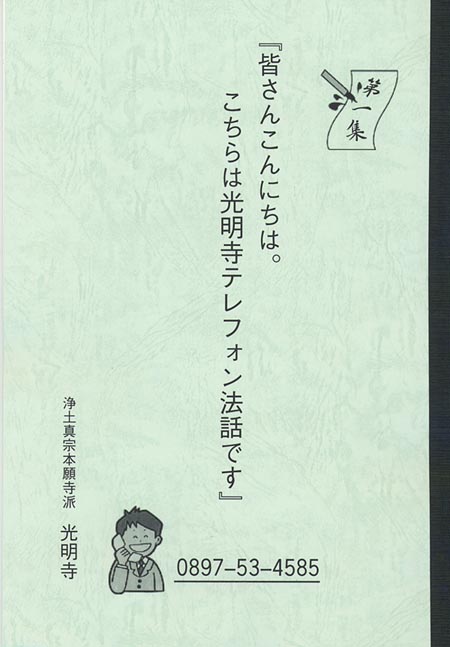 第一集
『皆さんこんにちは。
こちらは光明寺テレフォン法話です』
浄土真宗本願寺派 光明寺
0897-53-4585